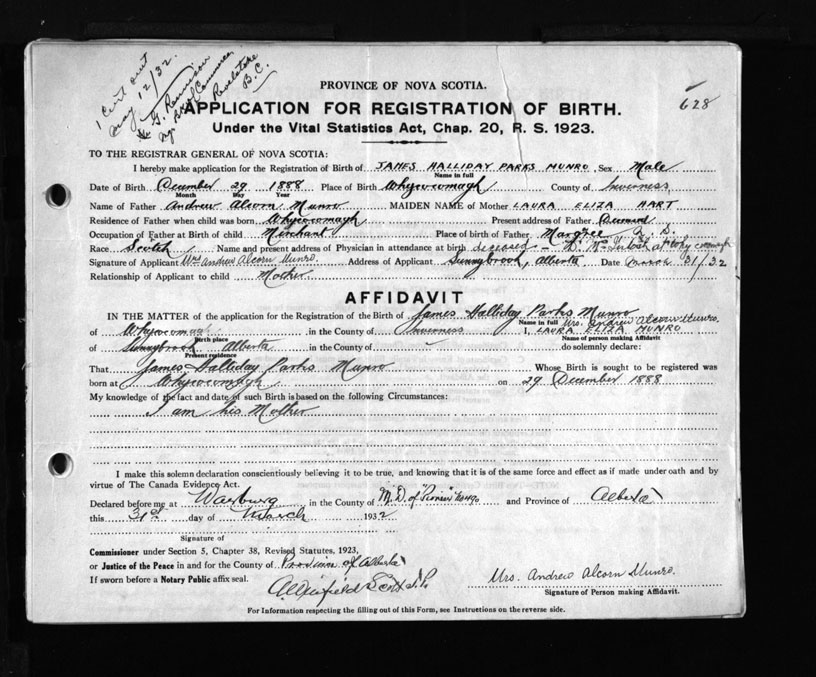 1 Cert out
May 12/32.
Revelstoke
B.C.
628
PROVINCE OF NOVA SCOTIA.
APPLICATION FOR REGISTRATION OF BIRTH.
Under the Vital Statistics Act, Chap. 20, R. S. 1923.
TO THE REGISTRAR GENERAL OF NOVA SCOTIA:
I hereby make application for the Registration of Birth of JAMES HALLIDAY PARKS MUNRO Sex Male
Name in full
Date of Birth December 29 1888 Place of Birth Whycocomagh County of Inverness
Month Day Year
Name of Father Andrew Alcorn Munro MAIDEN NAME of Mother LAURA ELIZA HART
Residence of Father when child was born Whycocomagh Present address of Father Deceased
Occupation of Father at Birth of child Merchant Place of birth of Father Margaree N. S.
Race Scotch Name and present address of Physician in attendance at birth deceased - Dr McIntosh at Whycocomagh
Signature of Applicant Mrs Andrew Alcorn Munro. Address of Applicant Sunnybrook, Alberta Date March 31/32
Relationship of Applicant to child Mother
AFFIDAVIT
IN THE MATTER of the application for the Registration of the Birth of James Halliday Parks Munro
Name in full Mrs. Andrew Alcorn Munro.
of in the County of Inverness I, LAURA ELIZA MUNRO
Birth place Name of person making Affidavit
of Sunnybrook Alberta in the County of do solemnly declare:
Present residence
That James Halliday Parks Munro Whose Birth is sought to be registered was
born at Whycocomagh on 29 December 1888
My knowledge of the fact and date of such Birth is based on the following Circumstances:
I am his Mother
I make this solemn declaration conscientiously believing it to be true, and knowing that it is of the same force and effect as if made under oath and by
virtue of The Canada Evidence Act.
Declared before me at Warburg in the County of M. D. of Pioneer and Province of Alberta
this 31st day of March 1932
Signature of
Commissioner under Section 5, Chapter 38, Revised Statutes, 1923,
or Justice of the Peace in and for the County of Province of Alberta
If sworn before a Notary Public affix seal.
Mrs. Andrew Alcorn Munro.
Signature of Person making Affidavit.
For Information respecting the filling out of this Form, see Instructions on the reverse side.